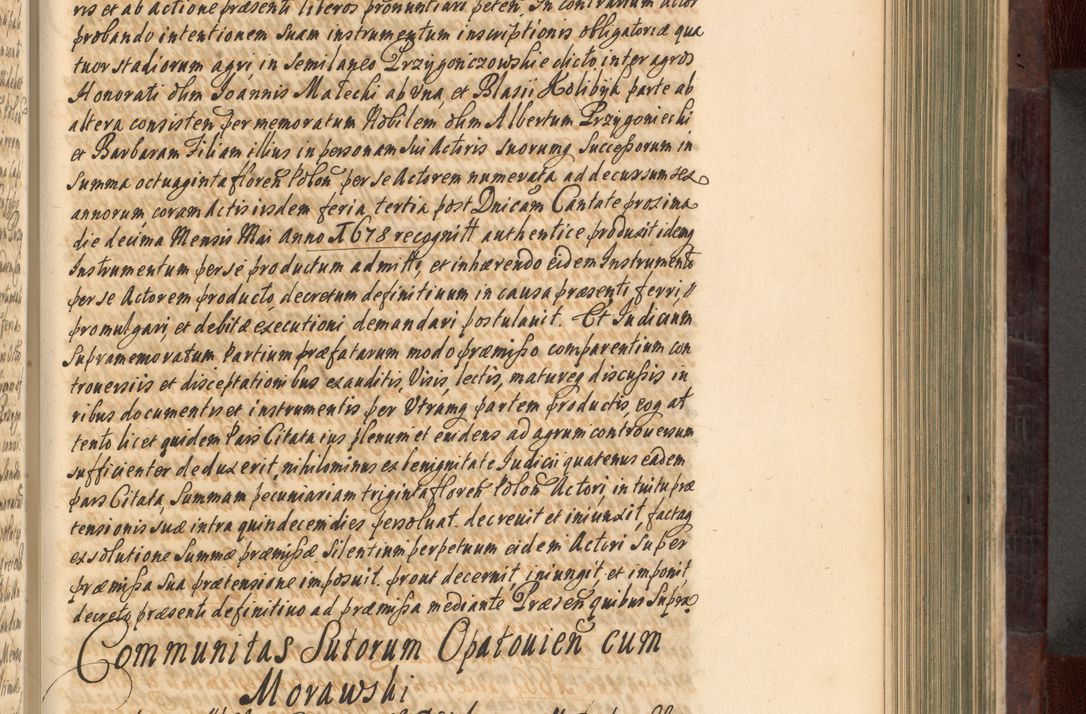 ris et ab actione præsenti liberos pronuntiari peten In contrarium actor
probando intentionem suam instrumentum inscriptionis obligatoriæ qua
tuor stadiorum agri in semilaneo Przygonczowskie dicto inter agros
Honorati olim Joannis Malechi ab una et Blasii Kolibyk parte ab
altera consisten per memoratum Nobilem olim Albertum Przygoniechi
et Barbaram Filiam illius in personam sui Actoris suorumq successorum in
summa octuaginta floren Polon per se Actorem numerata ad decursum sex
annorum, coram Actis iisdem feria tertia post Dnicam Cantate proxima
die decima Mensis Mai Anno 1678 recognitt authentice produxit idemq
Instrumentum per se productum admitti, et inhærendo eidem Instrumento
per se Actorem producto, decretum definitiuum in causa præsenti ferri,
promulgari, et debitæ executioni demandari postulauit. Et Iudicium
supramemoratum Partium præfatarum modo præmisso comparentium con
trouersiis et disceptationibus exauditis, Visis, lectis, matureq discussis in
ribus documentis et instrumentis per Utramq partem productis, eoq at
tento licet quidem Pars Citata ius plenum et euidens ad agrum controuersum
sufficienter deduxerit, nihilominus ex benignitate Iudicii quatenus eadem
pars Citata, summam pecuniariam triginta floren Polon Actori, intuitu præ
tensionis suæ intra quindecem dies persoluat decreuit et iniunxit, factaq
exsolutione summæ præmissæ silentium perpetuum eidem Actori super
præmissa sua prætensione imposuit. prout decernit iniungit et imponit
decreto præsenti definitiuo ad præmissa mediante Præsen quibus supra
Communitas Sutorum Opatouien cum
Morawski